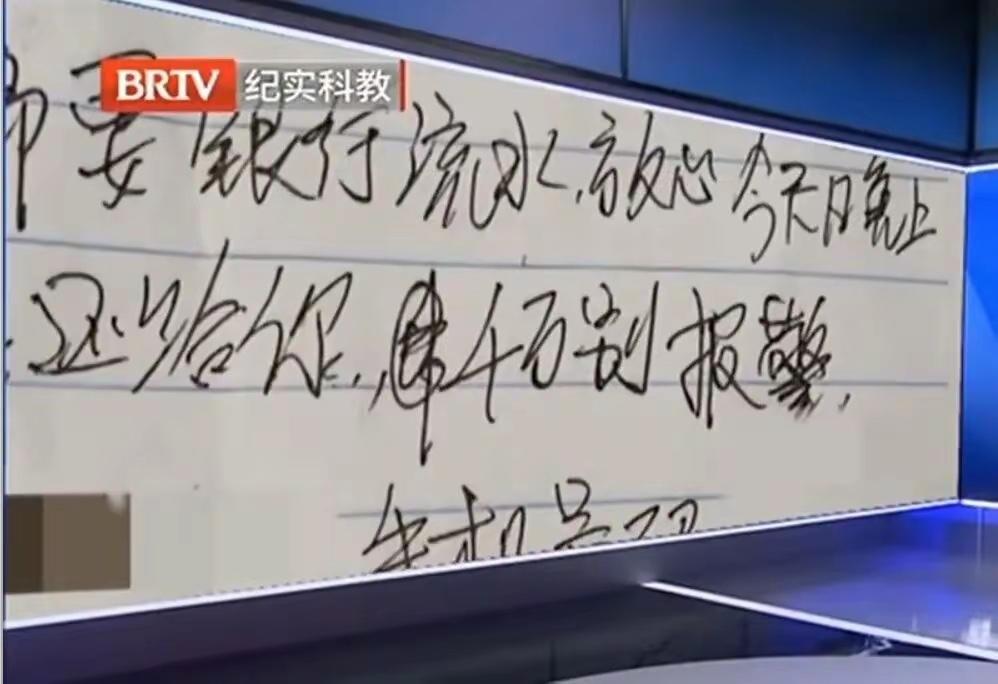 BRTV 纪实科教
要银行流水,放心今天晚上
还给你,千万别报警.
手机号码